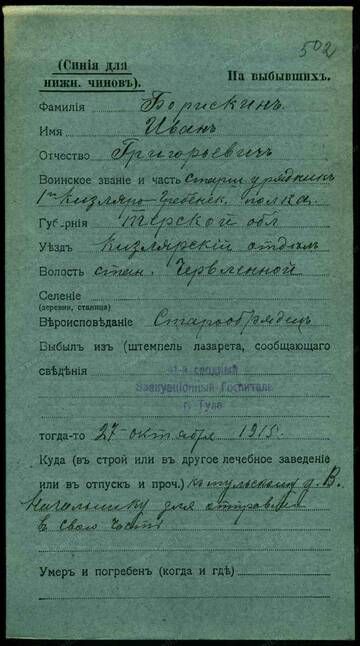 502
(Синія для
нижн. чиновъ).
На выбывшихъ.
Фамилія Борискинъ
Имя Иванъ
Отчество Григорьевичъ
Воинское званіе и часть старш. урядникъ
1го Кизляро-Гребенск. полка.
Губернія Терской обл
Уѣздъ Кизлярскій отдѣлъ
Волость стан. Червленной
Селеніе
(деревня, станица)
Вѣроисповѣданіе Старообрядецъ
Выбылъ изъ (штемпель лазарета, сообщающаго
свѣдѣнія
сводный
Эвакуаціонный Госпиталь
г. Тула
тогда-то 27 октября 1915.
Куда (въ строй или въ другое лечебное заведеніе
или въ отпускъ и проч.) къ тульскому у. В.
Начальнику для отправленія
въ свою часть
Умеръ и погребенъ (когда и гдѣ)